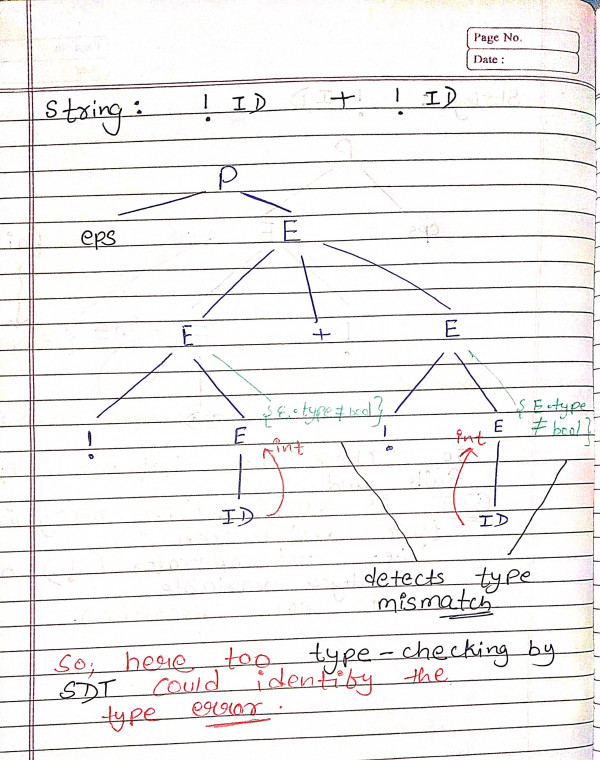 Page No.
Date :
String : ! ID + ! ID
P
eps E
E + E
{E.type ≠ bool} {E.type
! E int ! int E ≠ bool}
ID ID
detects type
mismatch
So, here too type-checking by
SDT could identify the
type error.